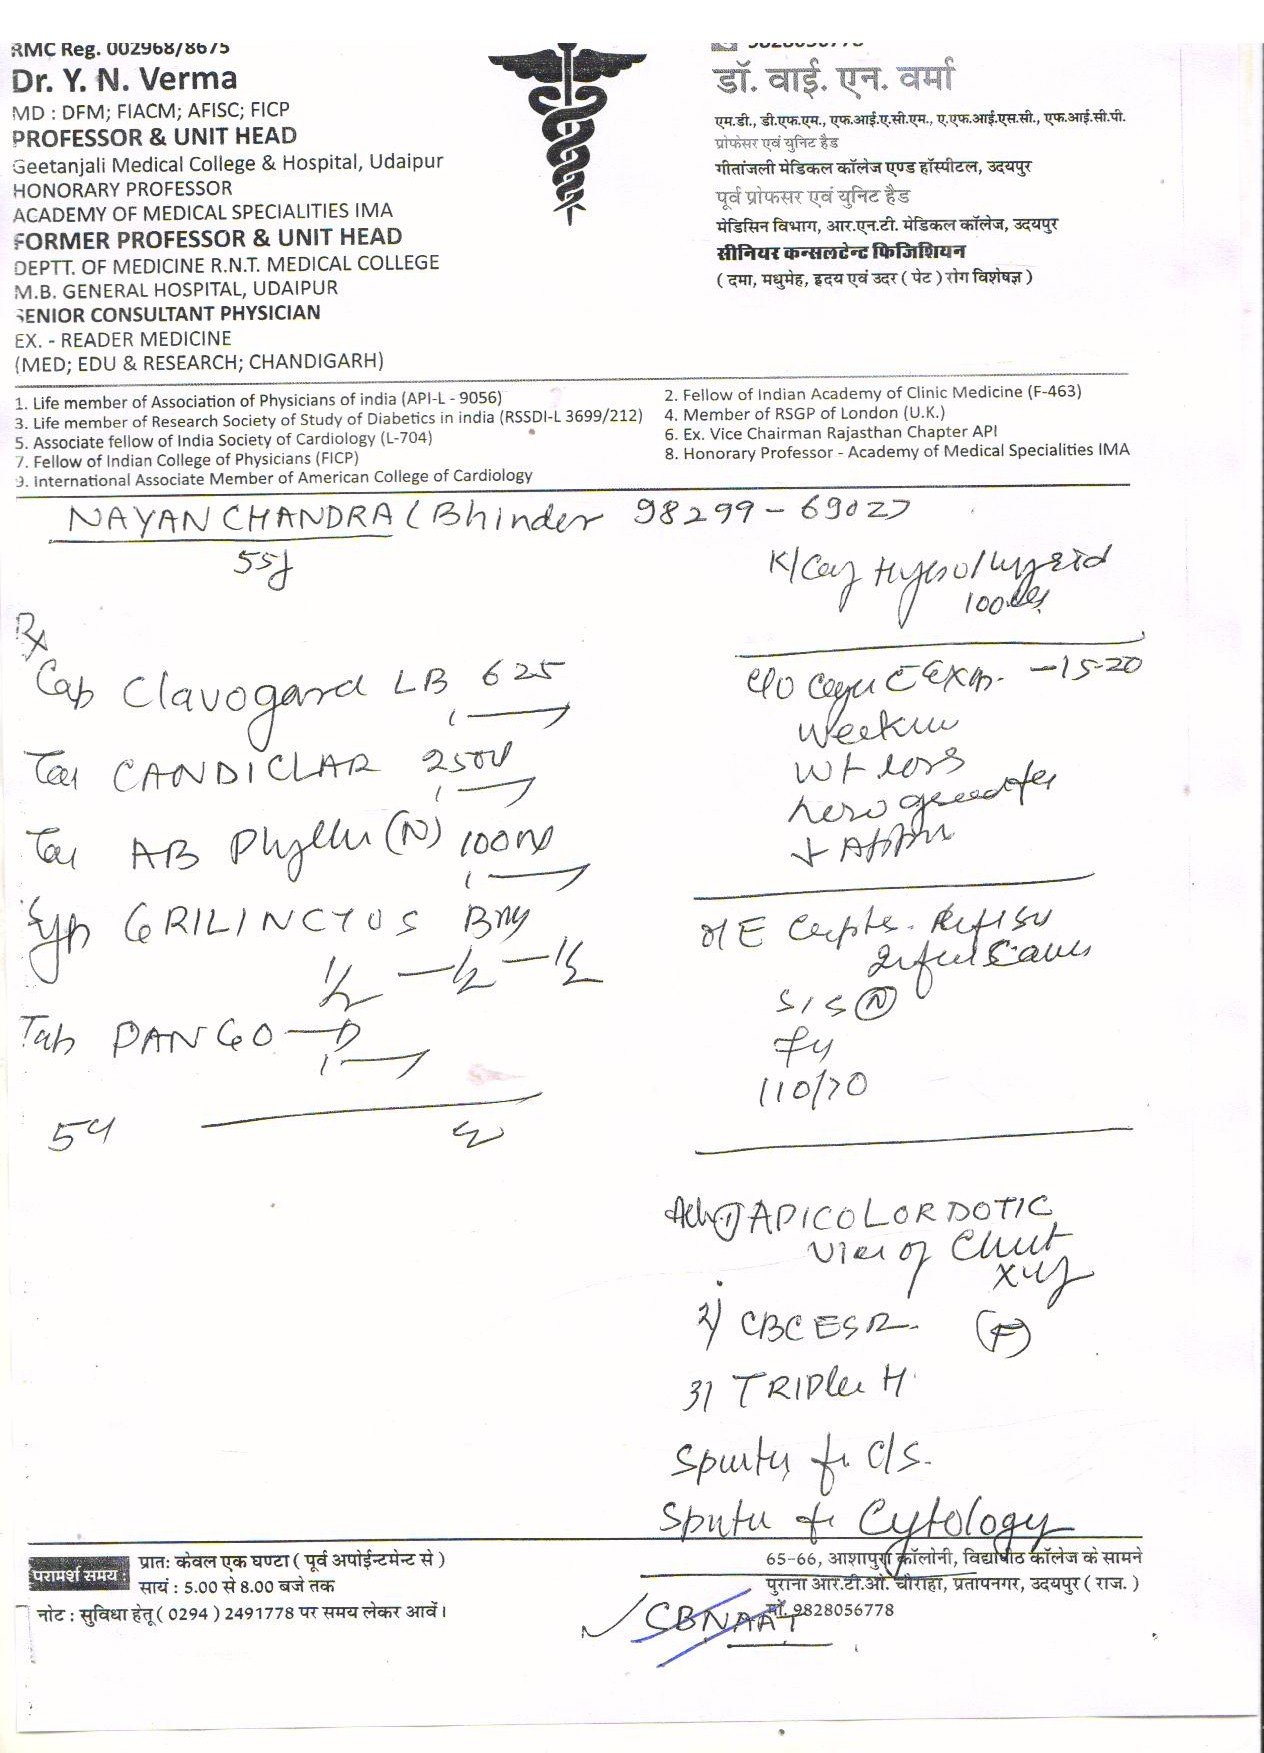 RMC Reg. 002968/8675
Dr. Y. N. Verma
MD : DFM; FIACM; AFISC; FICP
PROFESSOR & UNIT HEAD
Geetanjali Medical College & Hospital, Udaipur
HONORARY PROFESSOR
ACADEMY OF MEDICAL SPECIALITIES IMA
FORMER PROFESSOR & UNIT HEAD
DEPTT. OF MEDICINE R.N.T. MEDICAL COLLEGE
M.B. GENERAL HOSPITAL, UDAIPUR
SENIOR CONSULTANT PHYSICIAN
EX. - READER MEDICINE
(MED; EDU & RESEARCH; CHANDIGARH)
डॉ. वाई. एन. वर्मा
एम.डी., डी.एफ.एम., एफ.आई.ए.सी.एम., ए.एफ.आई.एस.सी., एफ.आई.सी.पी.
प्रोफेसर एवं युनिट हैड
गीतांजली मेडिकल कॉलेज एण्ड हॉस्पीटल, उदयपुर
पूर्व प्रोफसर एवं युनिट हैड
मेडिसिन विभाग, आर.एन.टी. मेडिकल कॉलेज, उदयपुर
सीनियर कन्सलटेन्ट फिजिशियन
( दमा, मधुमेह, हृदय एवं उदर ( पेट ) रोग विशेषज्ञ )
1. Life member of Association of Physicians of india (API-L - 9056)
2. Fellow of Indian Academy of Clinic Medicine (F-463)
3. Life member of Research Society of Study of Diabetics in india (RSSDI-L 3699/212)
4. Member of RSGP of London (U.K.)
5. Associate fellow of India Society of Cardiology (L-704)
6. Ex. Vice Chairman Rajasthan Chapter API
7. Fellow of Indian College of Physicians (FICP)
8. Honorary Professor - Academy of Medical Specialities IMA
9. International Associate Member of American College of Cardiology
NAYAN CHANDRA (Bhinder 98299-69027
55y
Rx
Cap Clavogard LB 625
CANDICLAR 250
AB Phyllin (N) 100
Syp GRILINCTUS
1/2 — 1/2 — 1/2
Tab PANGO-D
100
15-20
Weekn
Wt loss
O/E
S1S2 (N)
110/70
1) APICOLORDOTIC
View of Chest
Xray
2) CBC ESR (F)
3) TRIPLE H
Sputum for C/S.
Sputum for Cytology
CBNAAT
परामर्श समय :
प्रातः केवल एक घण्टा ( पूर्व अपोईन्टमेन्ट से )
सायं : 5.00 से 8.00 बजे तक
नोट : सुविधा हेतू ( 0294 ) 2491778 पर समय लेकर आवें।
65-66, आशापुरा कॉलोनी, विद्यापीठ कॉलेज के सामने
पुराना आर.टी.ओ. चौराहा, प्रतापनगर, उदयपुर ( राज. )
मो. 9828056778